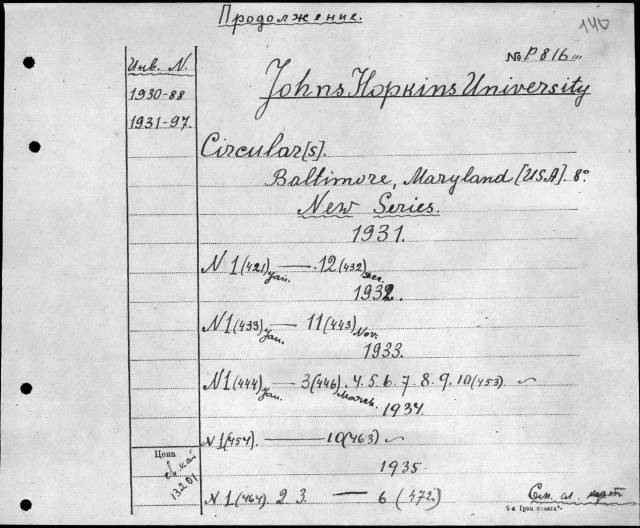 Продолжение.
140
№ P 816 III
Инв. N.
1930-88
1931-97.
Johns Hopkins University
Circular[s].
Baltimore, Maryland [USA]. 8°.
New Series.
1931.
N 1 (421) Jan. — 12 (432) Dec.
1932.
N 1 (433) Jan. — 11 (443) Nov.
1933.
N 1 (444) Jan. — 3 (446) March. 4. 5. 6. 7. 8. 9. 10 (453).
1934.
N 1 (454). — 10 (463)
1935.
N 1 (464) 2 3. — 6 (472)
Цена
См. сл.